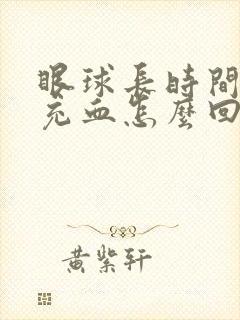 眼球長時間
充血怎麼回
黃紫軒